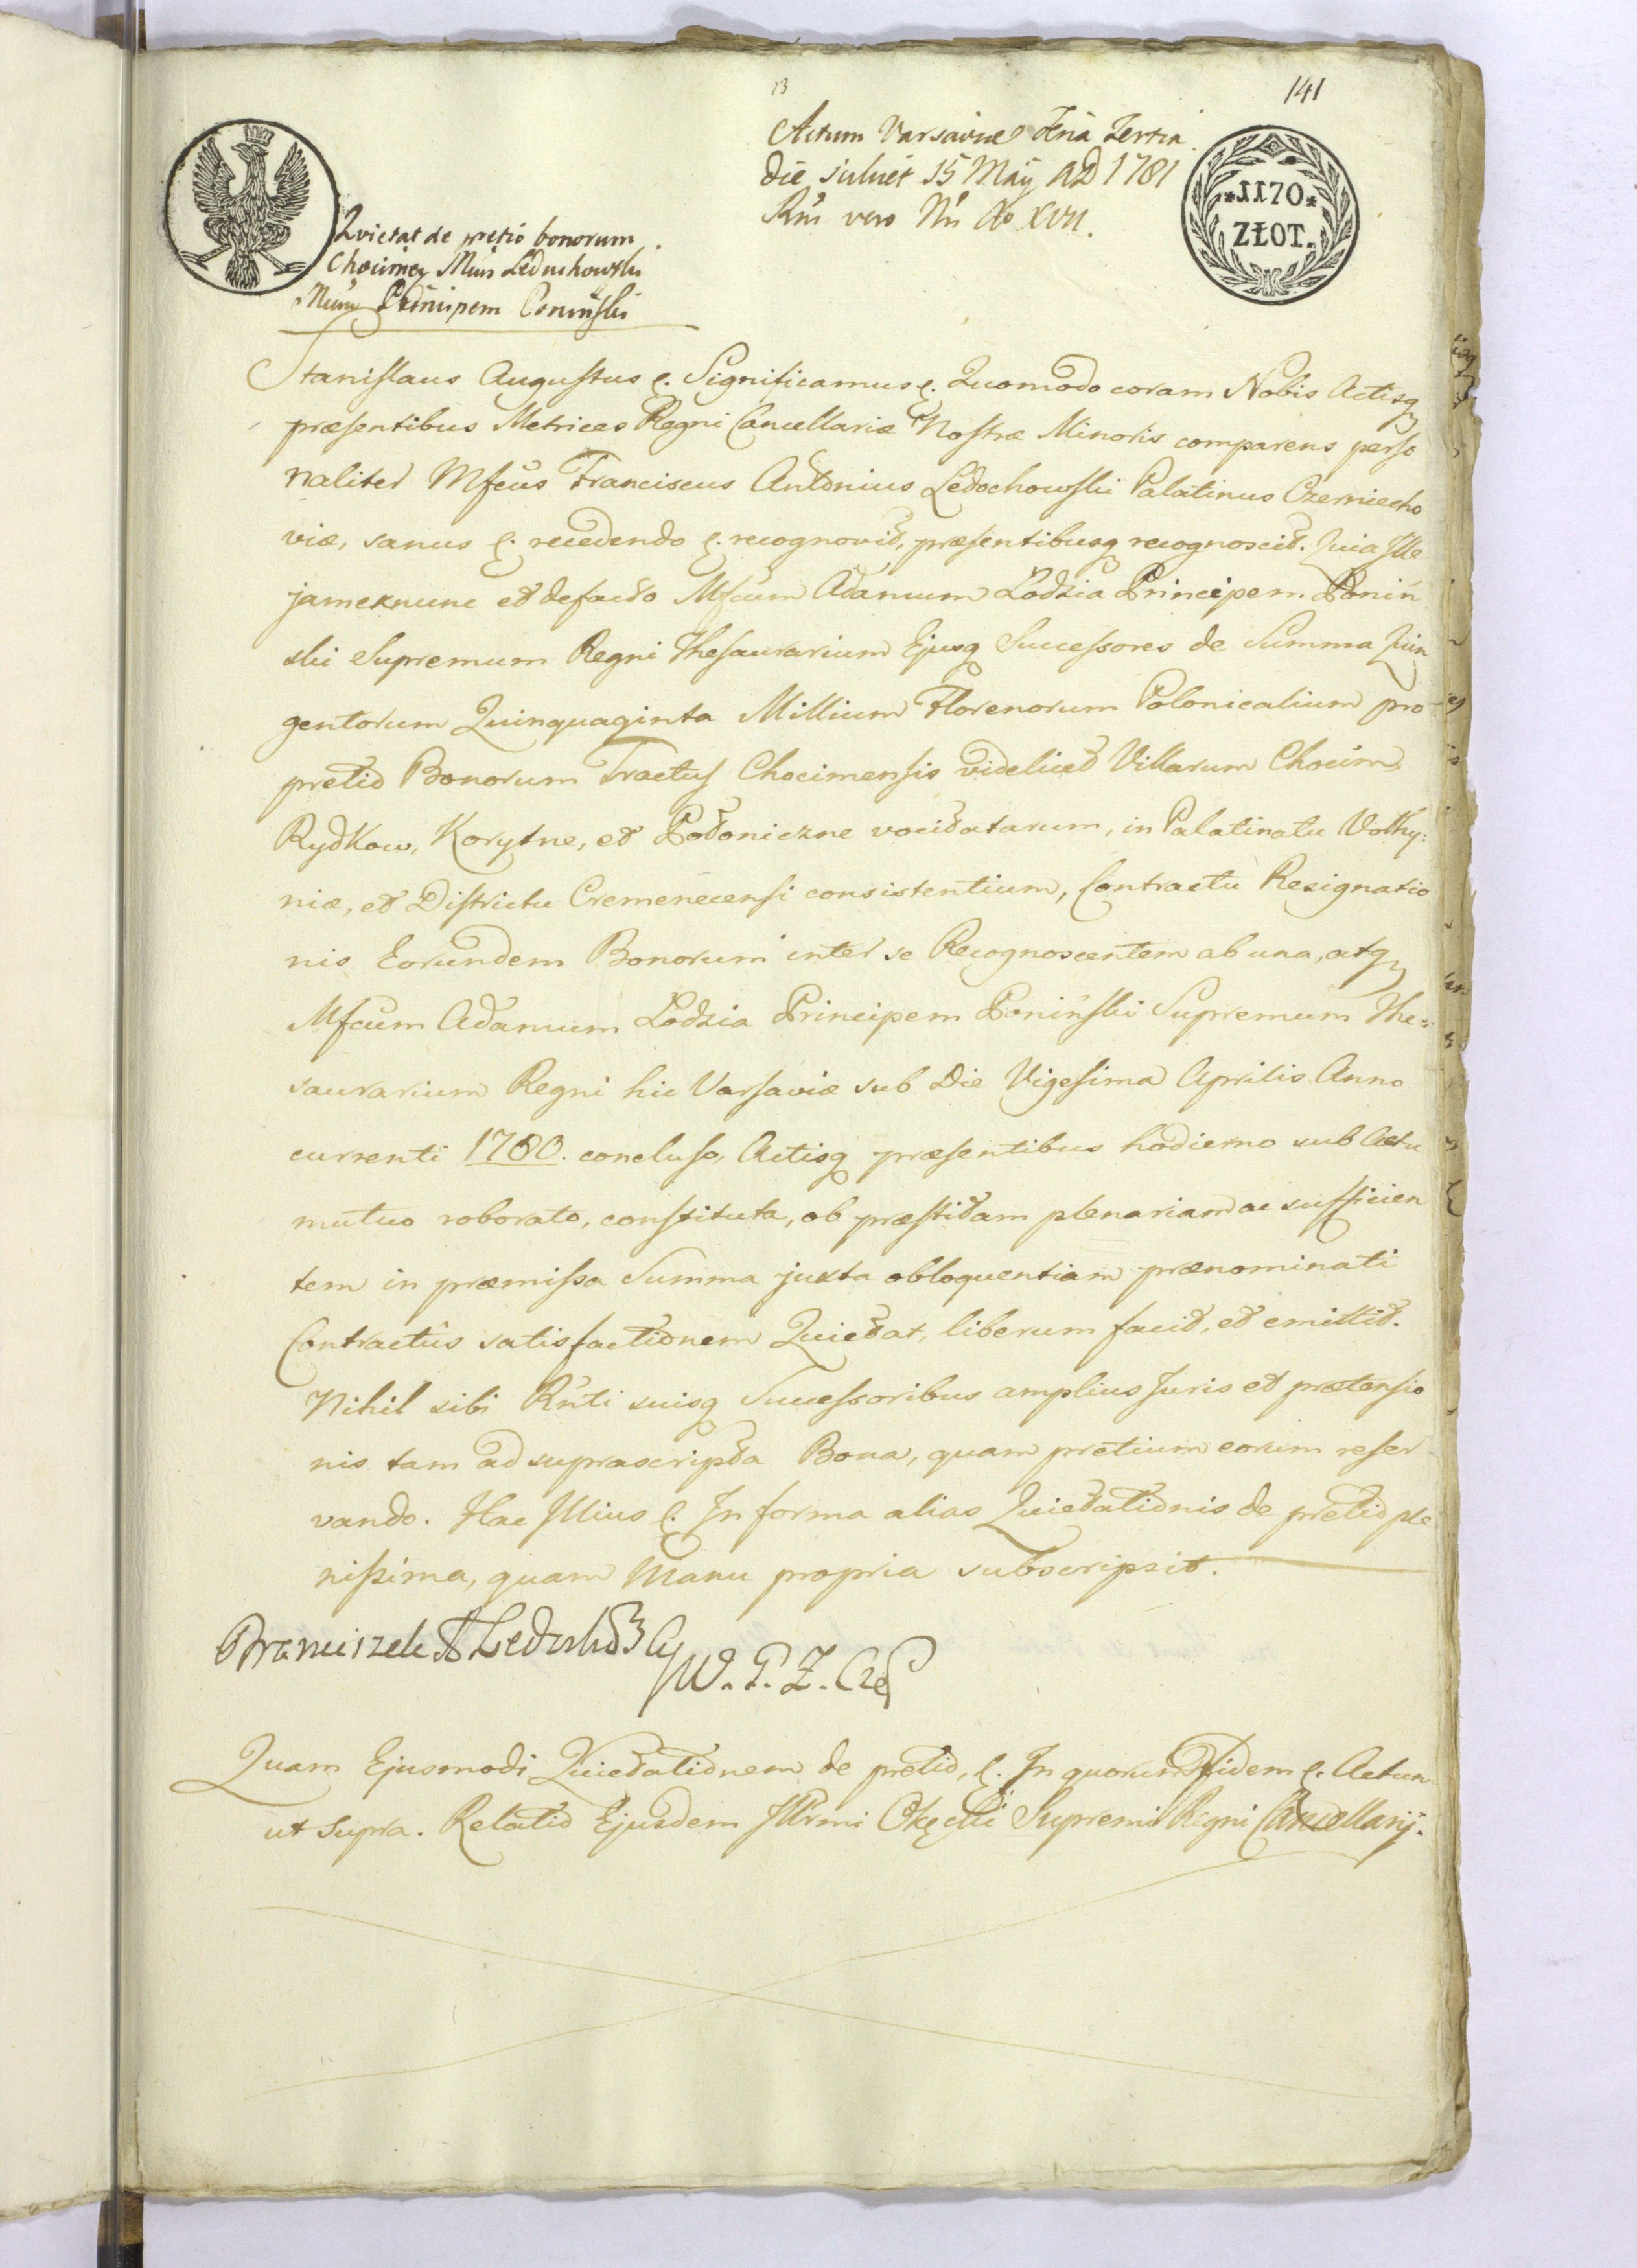 13
141
Actum Varsaviae Feria Tertia
die scilicet 15 Maij AD 1781
Rni vero Nri Ao XVII.
*1170*
ZŁOT.
Quietat de pretio bonorum
Chocimey Mcus Leduchowski
Mcum Principem Poninski
Stanislaus Augustus &. Significamus &. Quomodo coram Nobis Actisq
præsentibus Metrices Regni Cancellariæ Nostræ Minoris comparens perso
naliter Mfcus Franciscus Antonius Ledochowski Palatinus Czerniecho
viæ, sanus &. recedendo &. recognovit, præsentibusq recognoscit. Quia Ille
jam exnunc et defacto Mfcum Adamum Lodzia Principem Poniń
ski Supremum Regni Thesaurarium Ejusq Successores de Summa Quin
gentorum Quinquaginta Millium Florenorum Polonicalium pro
pretio Bonorum Tractus Chocimensis videlicet Villarum Chocim,
Rydkow, Korytne, et Podoniczne vocitatarum, in Palatinatu Volhy:
niæ, et Districtu Cremenecensi consistentium, Contractu Resignatio
nis Eorundem Bonorum inter se Recognoscentem ab una, atq
Mfcum Adamum Lodzia Principem Poniński Supremum The=
saurarium Regni hic Varsaviæ sub Die Vigesima Aprilis Anno
currenti 1780. concluso, Actisq præsentibus hodierno sub Actu
mutuo roborato, constituta, ob præstitam plenariam ac sufficien
tem in præmissa Summa juxta obloquentiam prænominati
Contractûs satisfactionem Quietat, liberum facit, et emittit.
Nihil sibi Rnti suisq Successoribus amplius Juris et prætensio
nis tam ad suprascripta Bona, quam pretium eorum reser
vando. Hac Illius &. In forma alias Quietationis de pretio ple
nissima, quam Manu propria subscripsit.
Franciszek A Leduchowski
W. G. Z. Cze
Quam Ejusmodi Quietationem de pretio, &. In quorum fidem &. Actum
ut supra. Relatio Ejusdem Illrmi Okęcki Supremi Regni Cancellarij.